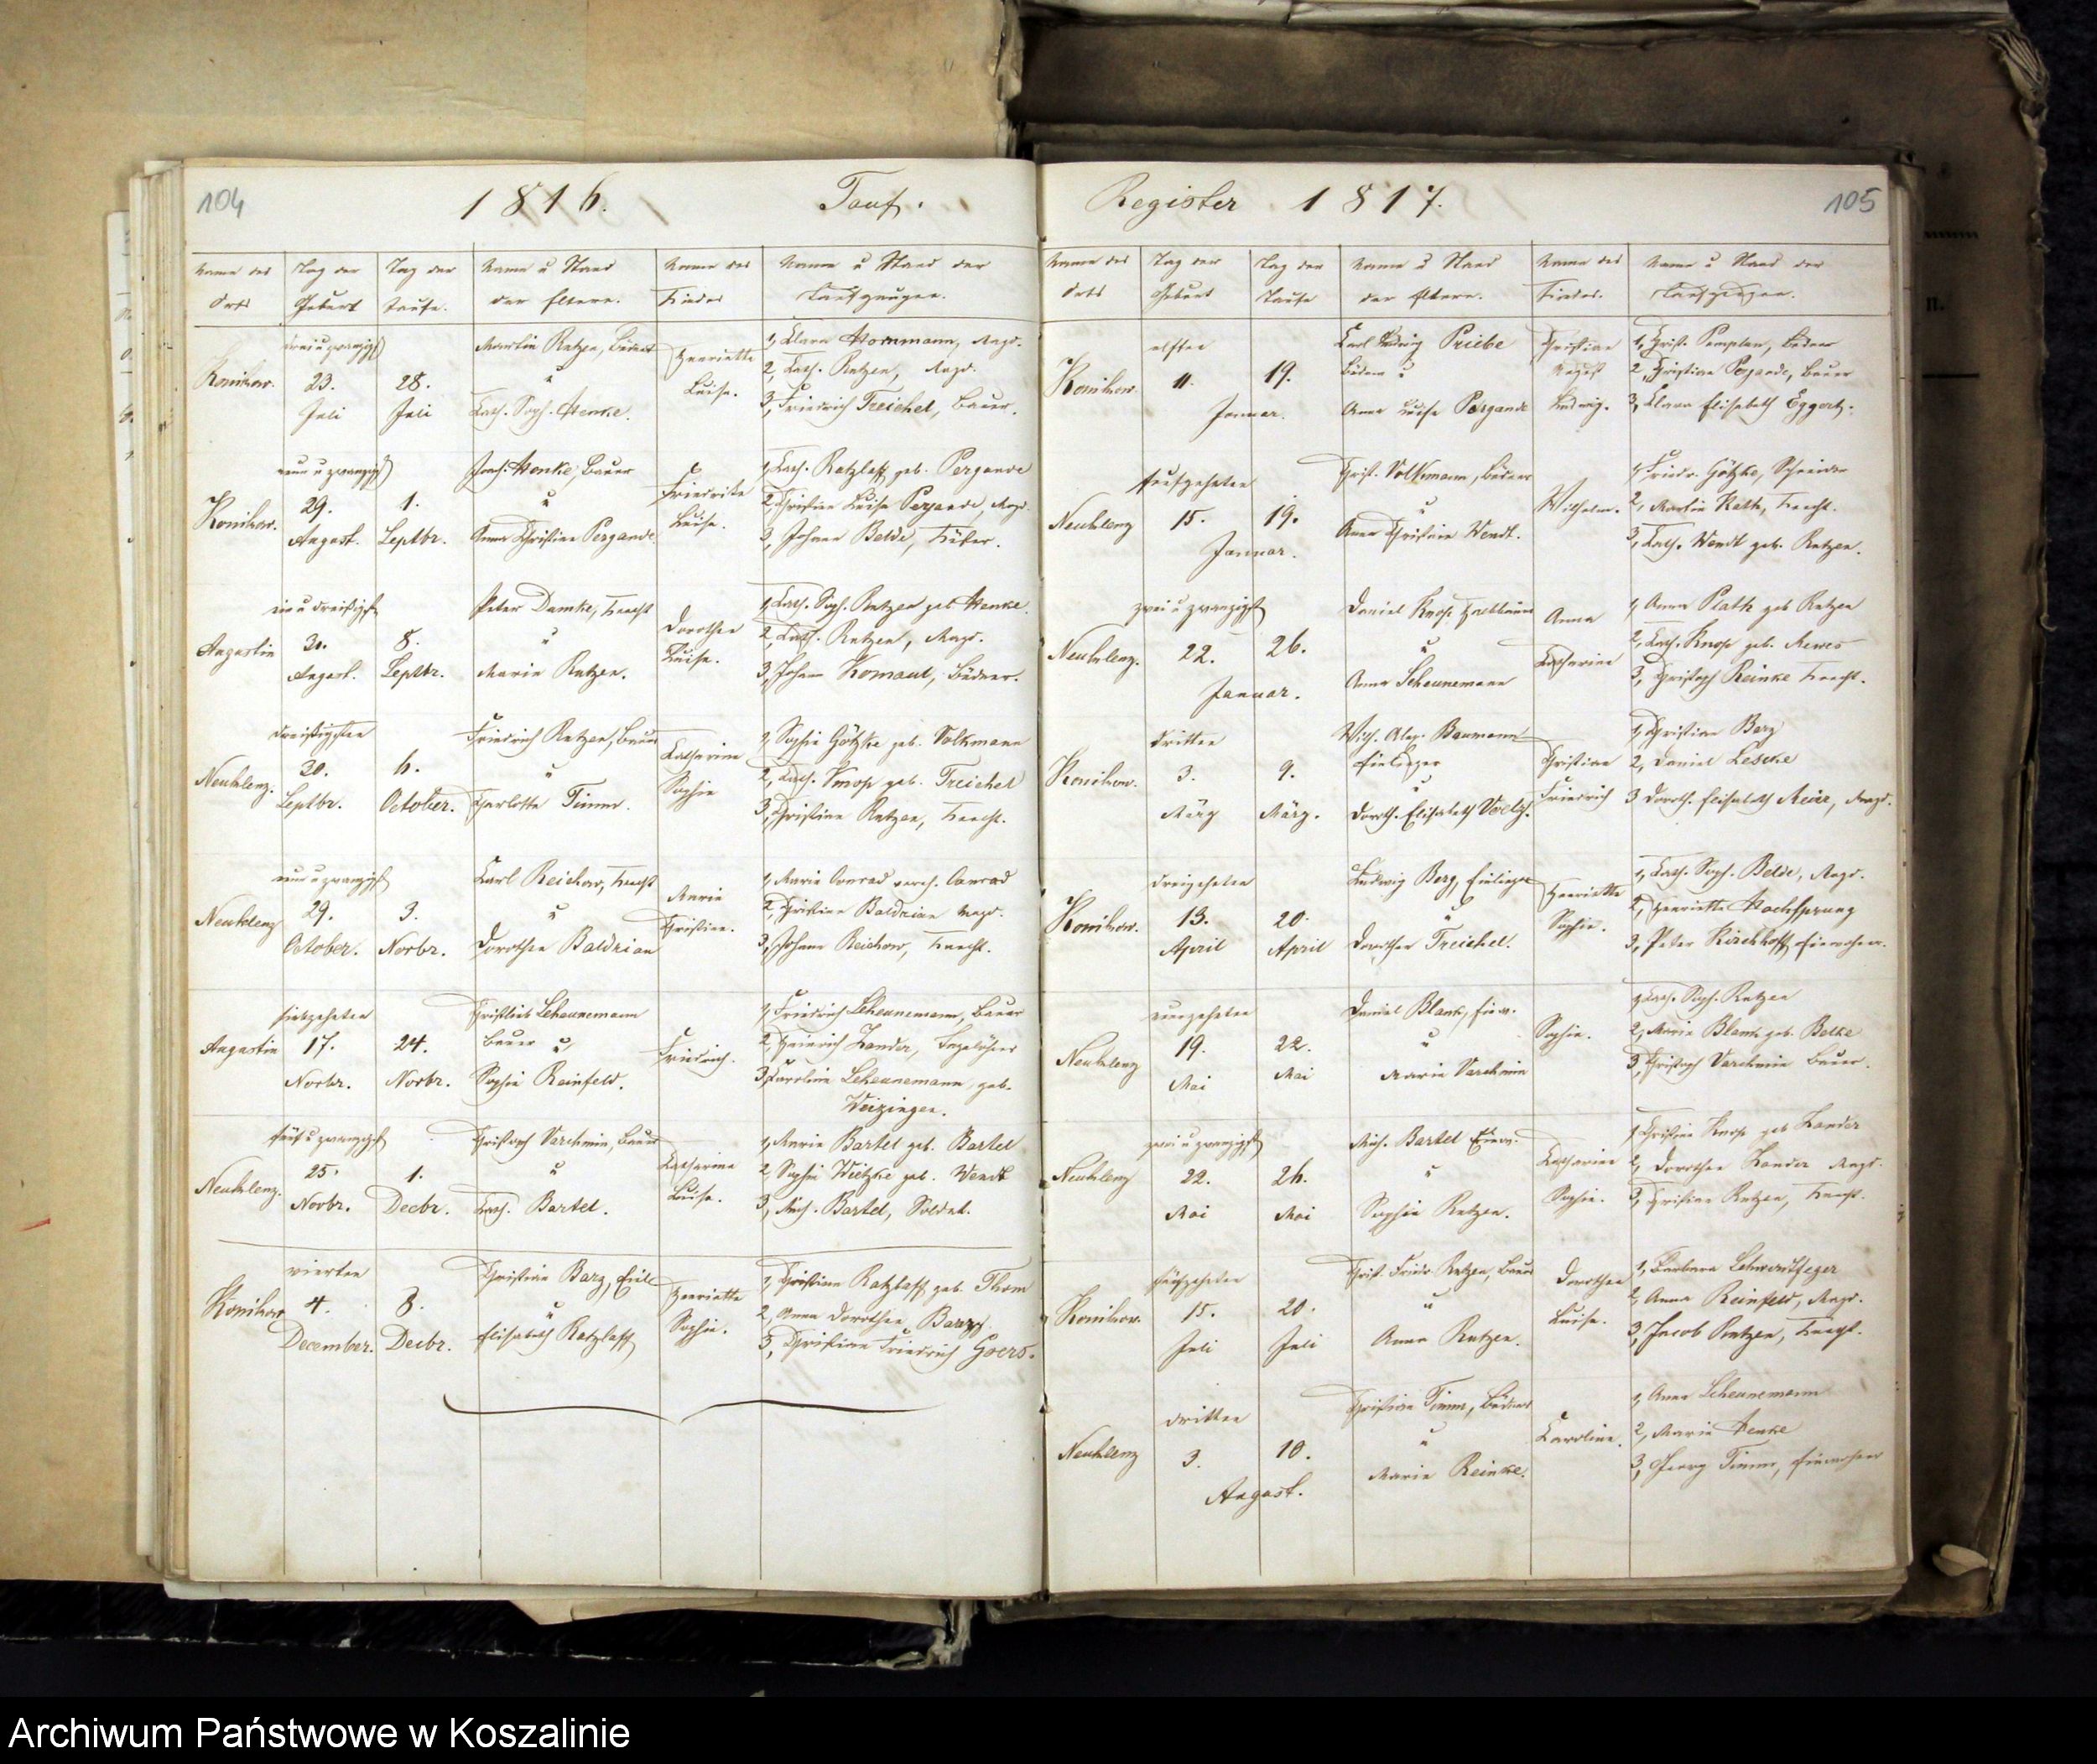 104
1816.
Tauf.
Name des Orts
Tag der Geburt
Tag der Taufe.
Name u Stand der Eltern.
Name des Kindes
Name u Stand der Taufzeugen.
Konikow.
drei u zwanzigst
23.
Juli
28.
Juli
Martin Retzen, Büdner
u
Cath. Soph. Henke.
Henriette
Luise.
1, Clara Hornmann, Magd.
2, Cath. Retzen, Magd.
3, Friedrich Treichel, Bauer.
Konikow.
neun u zwanzigst
29.
August.
1.
Septbr.
Joach. Henke, Bauer
u
Anna Christine Pergande.
Friedrike
Luise.
1, Cath. Ratzlaff geb. Pergande
2, Christine Luise Pergande, Magd.
3, Johann Belde,
Augustin
ein u dreißigst
August.
8.
Septbr.
Peter Damke, Knecht
u
Marie Retzen.
Dorothee
Luise.
1, Cath. Soph. Retzen geb Henke.
2, Cath. Retzen, Magd.
3, Johann Komaut, Büdner.
Neuklenz.
dreißigsten
30.
Septbr.
6.
October.
Friedrich Retzen, Bauer
u
Charlotte Timm.
Catharine
Sophie
1, Sophie Götzke geb. Volkmann
2, Cath. Knop geb. Treichel
3, Christian Retzen, Knecht.
Neuklenz
neun u zwanzigst
29.
October.
3.
Novbr.
Carl Reichow, Knecht
u
Dorothee Baldrian
Marie
Christine.
1, Marie Conrad Conrad
2, Christine Baldrian Magd.
3, Johann Reichow, Knecht.
Augustin
siebzehnten
17.
Novbr.
24.
Novbr.
Christlieb Scheunemann
Bauer u
Sophie Reinfeld.
Friedrich.
1, Friedrich Scheunemann, Bauer
2, Heinrich Zander, Tagelöhner
3, Caroline Scheunemann, geb.
Weizingen.
Neuklenz.
fünf u zwanzigst
25.
Novbr.
1.
Decbr.
Christoph Varchmin, Bauer
u
Cath. Bartel.
Catharine
Luise.
1, Marie Bartel geb. Bartel
2, Sophie Wietzke geb. Wendt
3, Mich. Bartel, Soldat.
Konikow
vierten
4.
December.
8.
Decbr.
Christian Barz, Einl.
u
Elisabeth Ratzlaff
Henriette
Sophie.
1, Christine Ratzlaff geb. Thom
2, Anna Dorothee Barz.
3, Christian Friedrich Goers.
Register 1817.
105
Name des Orts
Tag der Geburt
Tag der Taufe
Name u Stand der Eltern.
Name des Kindes.
Name u Stand der Taufzeugen.
Konikow.
elften
11.
19.
Januar.
Carl Ludwig Priebe
Büdner u
Anna Luise Pergande
Christian
August
Ludwig.
1, Christ. Pomplun, Büdner
2, Christian Pergande, Bauer
3, Clara Elisabeth Eggert.
Neuklenz
funfzehnten
15.
19.
Januar.
Christ. Volkmann, Büdner
u
Anna Christine Wendt.
Wilhelm.
1, Friedr. Götzke, Schneider
2, Martin Rath, Knecht.
3, Cath. Wendt geb. Retzen.
Neuklenz.
zwei u zwanzigst
22.
26.
Januar.
Daniel Knop, Halbbauer
u
Anna Scheunemann
Anna
Catharine
1, Anna Plath geb Retzen
2, Cath. Knop geb. Mewes
3, Christoph Reinke Knecht.
Konikow.
dritten
3.
März
9.
März.
Wilh. Alex. Baumann
Einlieger
u
Doroth. Elisabeth Voelz.
Christian
Friedrich
1, Christian Berg
2, Daniel Leseke
3 Doroth. Elisabeth Meier, Magd.
Konikow.
dreizehnten
13.
April
20.
April
Ludwig Berg, Einlieger
u
Dorothee Treichel.
Henriette
Sophie.
1, Cath. Soph. Belde, Magd.
2, Henriette Hochsprung
3, Peter Kirchhoff Einwohner.
Neuklenz
neunzehnten
19.
Mai
22.
Mai
Daniel Blank, Einw.
u
Marie Varchmin
Sophie.
1, Cath. Soph. Retzen
2, Marie Blank geb. Belke
3, Christoph Varchmin Bauer.
Neuklenz
zwei u zwanzigst
22.
Mai
26.
Mai
Mich. Bartel Einw.
u
Sophie Retzen.
Catharine
Sophie.
1, Christine Knop geb Zander
2, Dorothee Zander Magd.
3, Christian Retzen, Knecht.
Konikow.
fünfzehnten
15.
Juli
20.
Juli
Christ. Friedr. Retzen, Bauer
u
Anna Retzen.
Dorothee
Luise.
1, Barbara Schwerdtfeger
2, Anna Reinfeld, Magd.
3, Jacob Retzen, Knecht.
Neuklenz
dritten
3.
10.
August.
Christian Timm, Büdner
u
Marie Reinke.
Caroline.
1, Anna Scheunemann
2, Marie Henke
3, Georg Timm, Einwohner
Archiwum Państwowe w Koszalinie